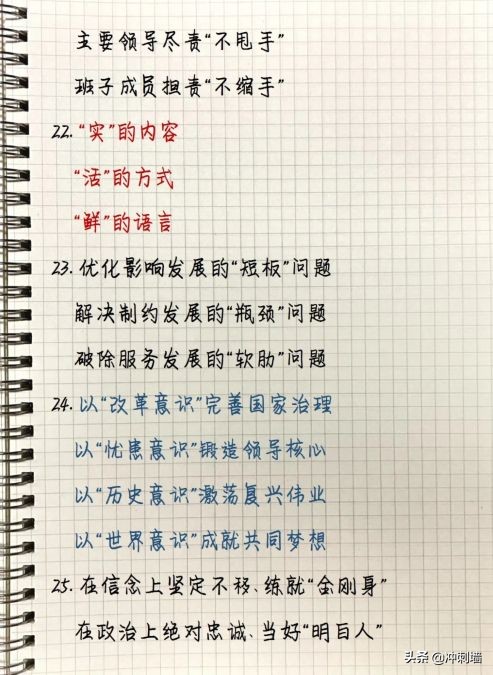 主要领导尽责“不甩手”
班子成员担责“不缩手”
22.“实”的内容
“活”的方式
“鲜”的语言
23.优化影响发展的“短板”问题
解决制约发展的“瓶颈”问题
破除服务发展的“软肋”问题
24.以“改革意识”完善国家治理
以“忧患意识”锻造领导核心
以“历史意识”激荡复兴伟业
以“世界意识”成就共同梦想
25.在信念上坚定不移、练就“金刚身”
在政治上绝对忠诚、当好“明白人”
头条@冲刺墙